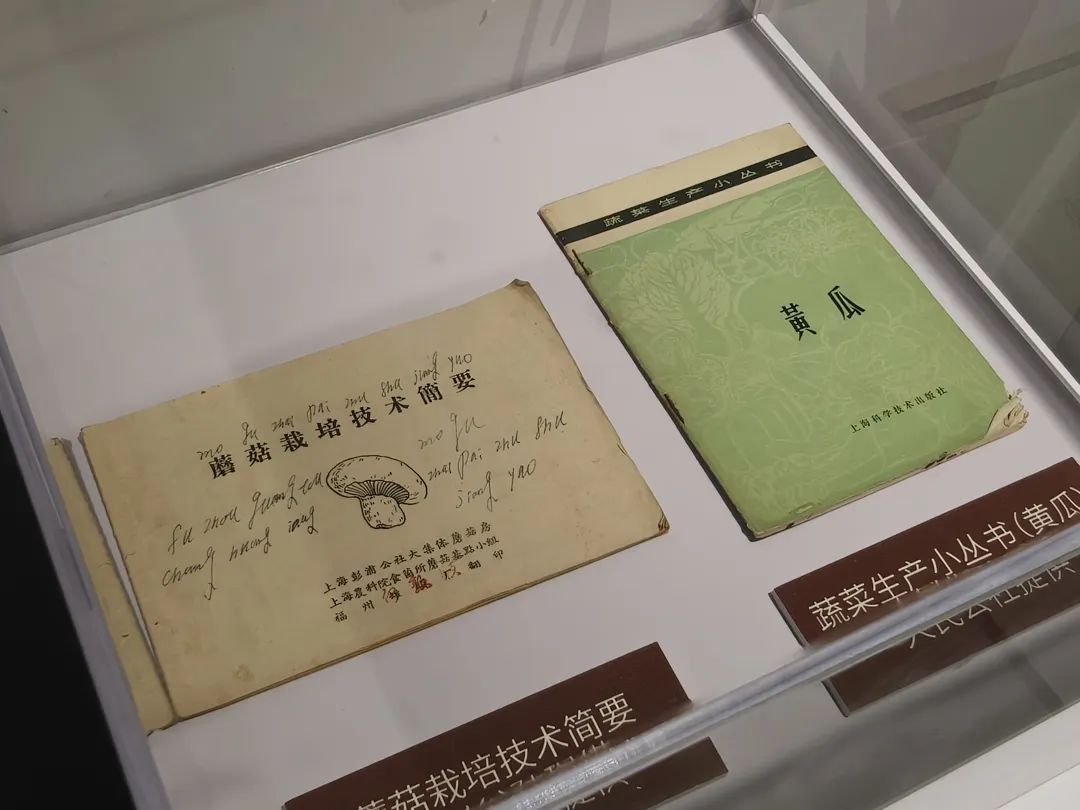 mo gu zhai pai zhu shu jiang yao
蘑菇栽培技术简要
mo gu
fu zhou guang
zhai pai zhu shu
chang huang jang
jiang yao
上海彭浦公社大集体蘑菇房
上海農科院食菌所蘑菇蹲點小组
福州
翻印
蔬菜生产小丛书
黄瓜
上海科学技术出版社
蘑菇栽培技术简要
蔬菜生产小丛书(黄瓜)
人民公社提供